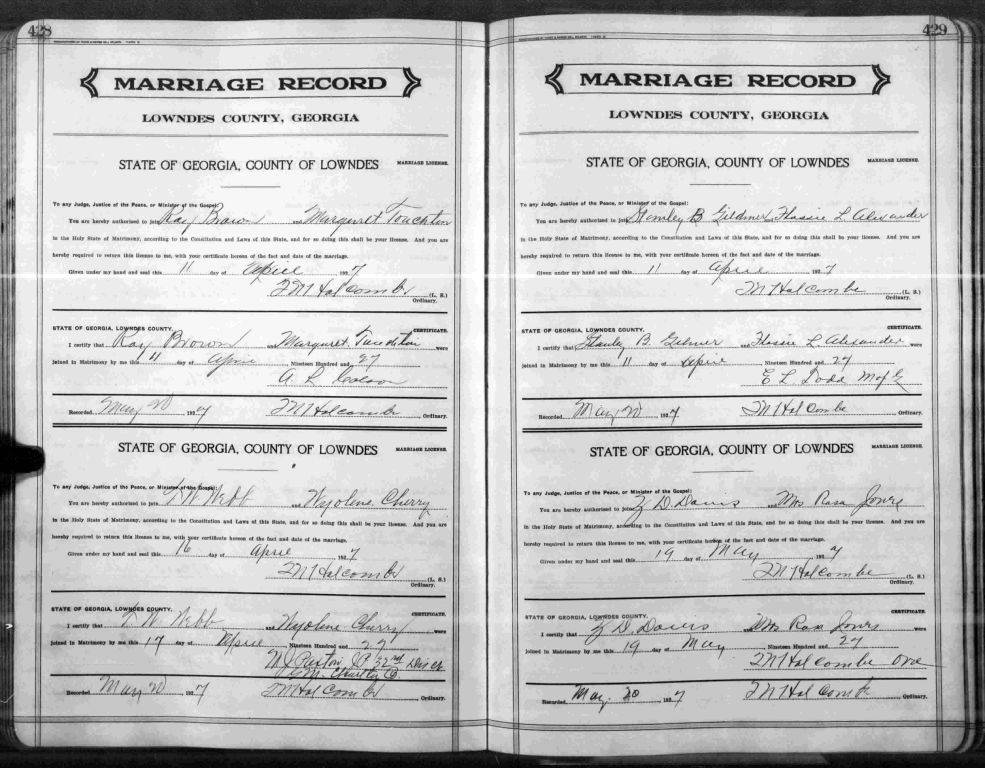 428
MARRIAGE RECORD
LOWNDES COUNTY, GEORGIA
STATE OF GEORGIA, COUNTY OF LOWNDES MARRIAGE LICENSE.
To any Judge, Justice of the Peace, or Minister of the Gospel:
You are hereby authorised to join Ray Brown and Margaret Touchton
in the Holy State of Matrimony, according to the Constitution and Laws of this State, and for so doing this shall be your license. And you are
hereby required to return this license to me, with your certificate hereon of the fact and date of the marriage.
Given under my hand and seal this 11 day of Aprie 1927
T M Holcombe (L. S.)
Ordinary.
STATE OF GEORGIA, LOWNDES COUNTY. CERTIFICATE.
I certify that Ray Brown and Margaret Touchton were
joined in Matrimony by me this 11 day of Aprie Nineteen Hundred and 27
A. L.
Recorded May 20 1927 T M Holcombe Ordinary.
STATE OF GEORGIA, COUNTY OF LOWNDES MARRIAGE LICENSE.
To any Judge, Justice of the Peace, or Minister of the Gospel:
You are hereby authorised to join W. Webb and Wyolene Cherry
in the Holy State of Matrimony, according to the Constitution and Laws of this State, and for so doing this shall be your license. And you are
hereby required to return this license to me, with your certificate hereon of the fact and date of the marriage.
Given under my hand and seal this 16 day of Aprie 1927
T M Holcombe (L. S.)
Ordinary.
STATE OF GEORGIA, LOWNDES COUNTY. CERTIFICATE.
I certify that W. Webb and Wyolene Cherry were
joined in Matrimony by me this 17 day of Aprie Nineteen Hundred and 27
M. J. Paxton J P 32nd Dist
G. M. Charlton Co.
Recorded May 20 1927 T M Holcombe Ordinary.
429
MARRIAGE RECORD
LOWNDES COUNTY, GEORGIA
STATE OF GEORGIA, COUNTY OF LOWNDES MARRIAGE LICENSE.
To any Judge, Justice of the Peace, or Minister of the Gospel:
You are hereby authorised to join Stanley B Gildmer Flossie L Alexander
in the Holy State of Matrimony, according to the Constitution and Laws of this State, and for so doing this shall be your license. And you are
hereby required to return this license to me, with your certificate hereon of the fact and date of the marriage.
Given under my hand and seal this 11 day of Aprie 1927
T M Holcombe (L. S.)
Ordinary.
STATE OF GEORGIA, LOWNDES COUNTY. CERTIFICATE.
I certify that Stanley B. Gilmer and Flossie L Alexander were
joined in Matrimony by me this 11 day of Aprie Nineteen Hundred and 27
E L Todd M of G
Recorded May 20 1927 T M Holcombe Ordinary.
STATE OF GEORGIA, COUNTY OF LOWNDES MARRIAGE LICENSE.
To any Judge, Justice of the Peace, or Minister of the Gospel:
You are hereby authorised to join D Davis and Mrs Rosa Jones
in the Holy State of Matrimony, according to the Constitution and Laws of this State, and for so doing this shall be your license. And you are
hereby required to return this license to me, with your certificate hereon of the fact and date of the marriage.
Given under my hand and seal this 19 day of May 1927
T M Holcombe (L. S.)
Ordinary.
STATE OF GEORGIA, LOWNDES COUNTY. CERTIFICATE.
I certify that D. Davis and Mrs Rosa Jones were
joined in Matrimony by me this 19 day of May Nineteen Hundred and 27
T M Holcombe Ord
Recorded May 20 1927 T M Holcombe Ordinary.